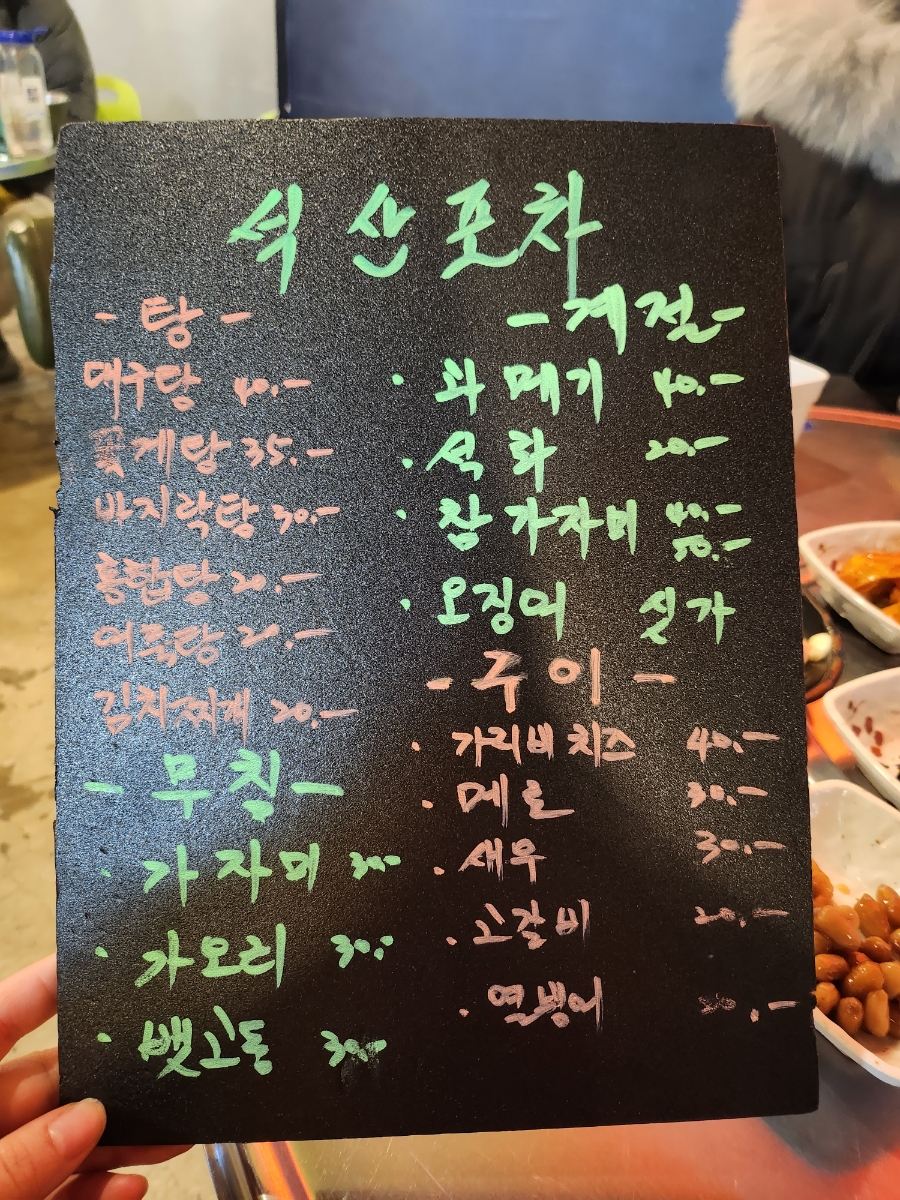 석산포차
-탕-
대구탕 40.-
꽃게탕 35.-
바지락탕 30.-
홍합탕 20.-
어묵탕 20.-
김치찌개 20.-
-무침-
· 가자미 30-
· 가오리 30.-
· 뺏고동 30.-
-계절-
· 과메기 40.-
· 석화 20.-
· 참가자미 40.-
50.-
· 오징어 싯가
-구이-
· 가리비치즈 40.-
· 메로 30.-
· 새우 30.-
· 고갈비 20.-
· 열빙어